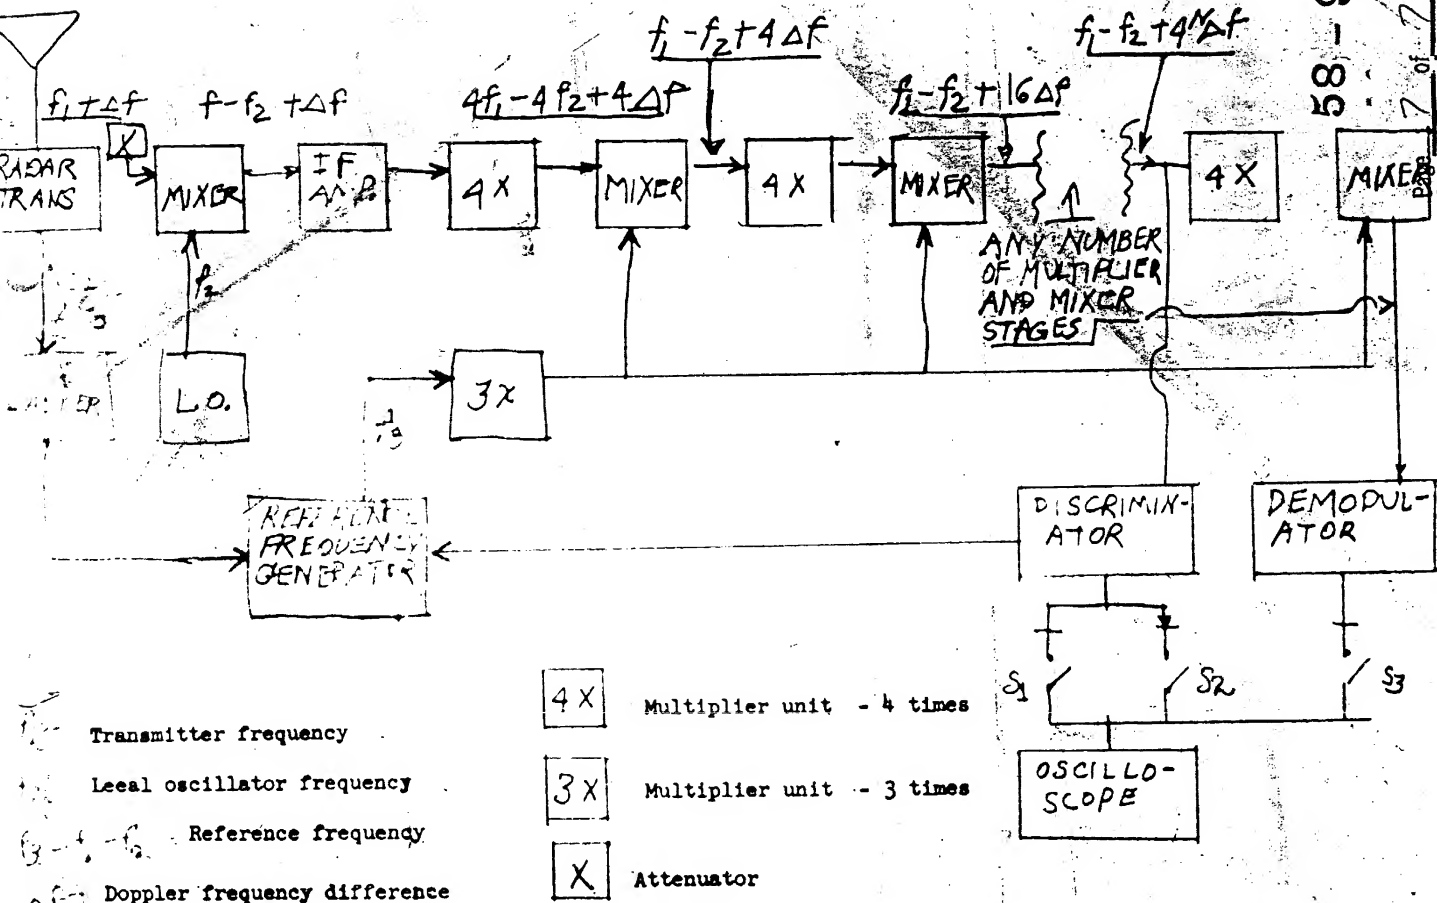 f₁ - f₂ + 4Δf
f₁ - f₂ + 4ᴺΔf
58 -
Page 7 of 7
f₁ + Δf
f - f₂ + Δf
4f₁ - 4f₂ + 4Δf
f₁ - f₂ + 16Δf
RADAR
TRANS
X
MIXER
IF
AMP.
4X
MIXER
4X
MIXER
4X
MIXER
ANY NUMBER
OF MULTIPLIER
AND MIXER
STAGES
f₂
L.O.
3X
REFERENCE
FREQUENCY
GENERATOR
DISCRIMIN-
ATOR
DEMODUL-
ATOR
S1
S2
S3
OSCILLO-
SCOPE
Transmitter frequency
Leeal oscillator frequency
f₃ - f₁ - f₂ Reference frequency
Doppler frequency difference
4X Multiplier unit - 4 times
3X Multiplier unit - 3 times
X Attenuator